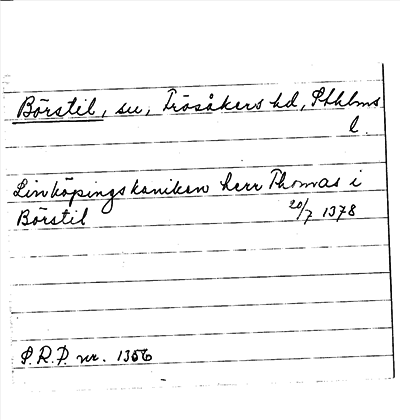 Börstil, su, Frösåkers hd, Sthlms
l.
Linköpingskaniken herr Thomas i
Börstil 20/7 1378
S.R.P. nr. 1356